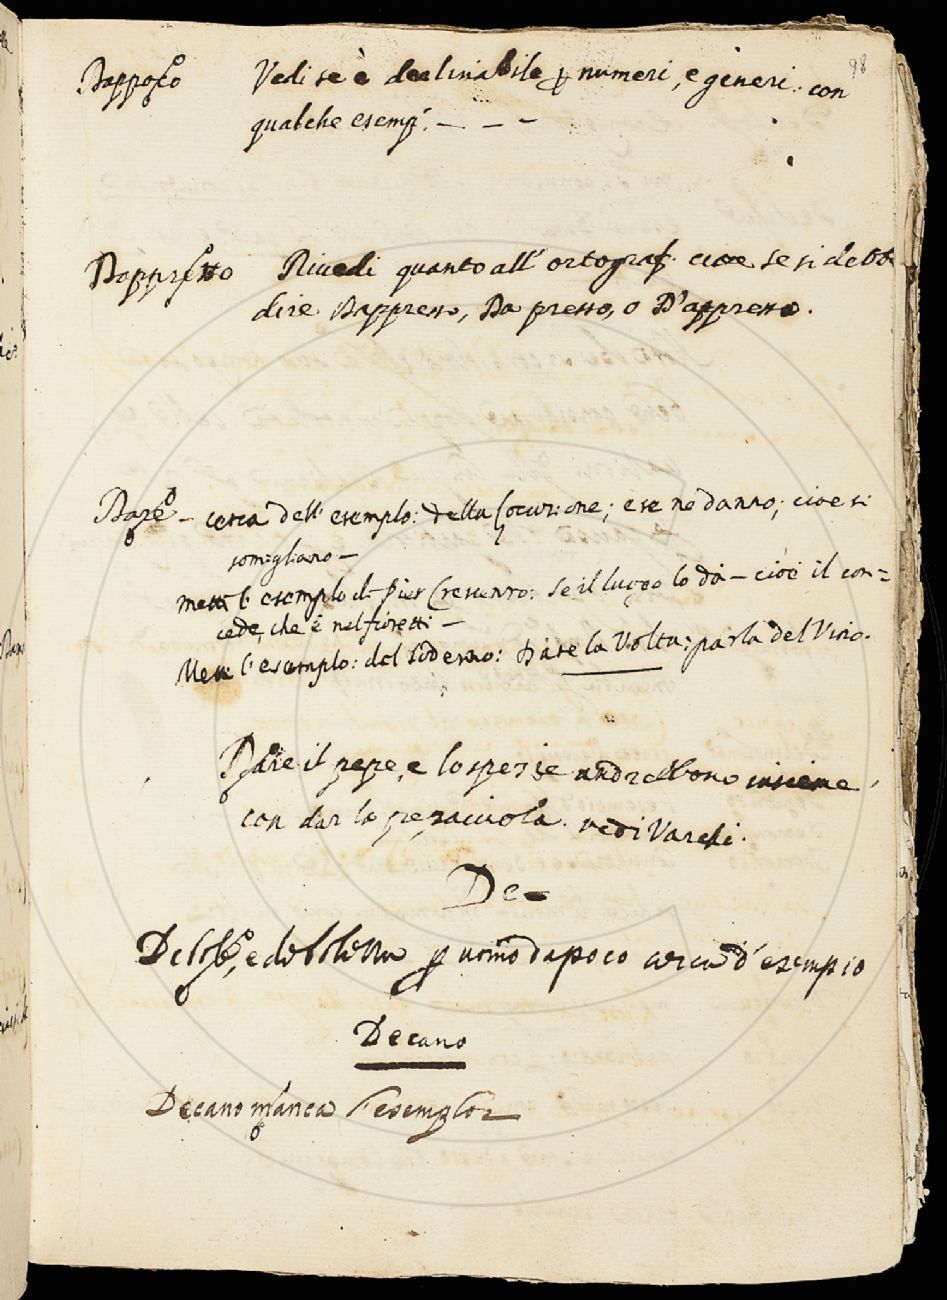 98
Dappoco Vedi se è declinabile p numeri, e generi: con
qualche esemp. — — —
Dappresso Rivedi quanto all' ortograf. cioe se si debbe
dire Dappresso, Da presso, o D'appresso.
Dare – cerca dell' esemplo: della locuzione; e se ne danno; cioe si
somigliano —
Metti l' esemplo di Pier Crescenzo: se il luogo lo dà – cioè il con=
cede, che è nel fioretti —
Metti l' esemplo: del Soderno: Dare la Volta: parla del Vino.
Dare il pepe, e lo spezie andrebbono insieme
con dar la peracciola. vedi Varchi.
De-
Debole, e deboletto p uomo dapoco cerca d' esempio
Decano
Decano manca l' esemplo